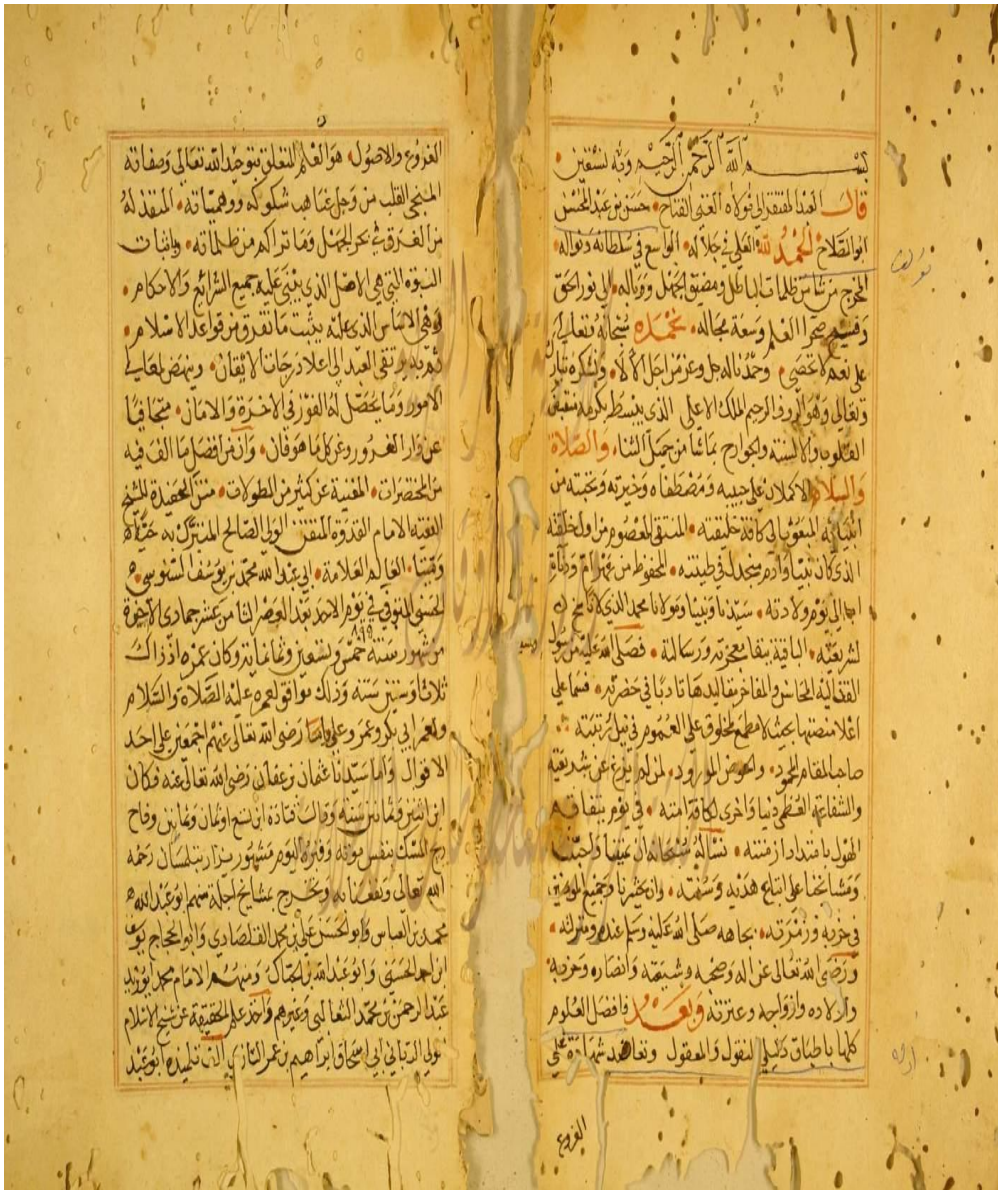 بسم الله الرحمن الرحيم وبه نستعين
قال العبد المفتقر الى مولاه الغني الفتاح حسن بن عبد المحسن
الحمد لله العلي في جلاله الواسع في سلطانه ونواله
المخرج من شاء من ظلمات الباطل ومضيق الجهل ووباله الى نور الحق
العلم وسعة مجاله نحمده سبحانه وتعالى
على نعم لا تحصى وحمدنا له جل وعز من اجل الآلاء ونشكره تبارك
وتعالى وهو الروف الرحيم الملك الاعلى الذي يبسط بكرمه منقبض
القلوب والالسنة والجوارح بما شا من جميل الثناء والصلاة
والسلام الاكملان على حبيبه ومصطفاه وخيرته ونخبته من
انبيائه المبعوث الى كافة خليقته المنتقى المعصوم من اول خلقته
الذي كان نبيا وآدم منجدل في طينته المحفوظ من
الى يوم ولادته سيدنا ونبينا ومولانا محمد الذي لا ناسخ
لشريعته الباقية ببقا معجزته ورسالته فصلى الله عليه من رسول
المحاسن والمفاخر مقاليدها تادبا في حضرته فسما على
اعلا منصتها بحيث لا مطمع لمخلوق على العموم في نيل رتبته
صاحب المقام المحمود والحوض المورود لمن لم يزغ عن شريعته
والشفاعة العظمى دنيا واخرى لكافة امته في يوم يتفاقم
الهول بامتداد ازمنته نساله سبحانه ان يميتنا واحبتنا
ومشايخنا على اتباع هديه وسنته وان يحشرنا وجميع المومنين
في حزبه وزمرته بجاهه صلى الله عليه وسلم عنده ومنزلته
ورضى الله تعالى عن اله وصحبه وشيعته وانصاره وحزبه
واولاده وازواجه وعترته وبعد فافضل العلوم
كلها باطباق دليلي المنقول والمعقول وتعاضد شهادة على
الفروع
الفروع والاصول هو العلم المتعلق بتوحيد الله تعالى وصفاته
المنجي القلب من وجل غياهب شكوكه ووهمياته المنقذ له
من الغرق في بحر الجهل وما تراكم من ظلماته وباثبات
النبوة التي هي الاصل الذي ينبني عليه جميع الشرائع والاحكام
وهي الاساس الذي عليه يثبت ما تفرق من قواعد الاسلام
فبه يرتقى العبد الى اعلا درجات الايقان وينهض لمعالي
الامور وما يحصل له الفوز في الاخرة والامان متجافيا
عن دار الغرور وعن كل ما هو فان وان من افضل ما الف فيه
من المختصرات المغنية عن كثير من المطولات متن العقيدة للشيخ
الفقيه الامام القدوة المتقن الولي الصالح المتبرك به حيا
وميتا العالم العلامة ابي عبد الله محمد بن يوسف السنوسي
الحسني المتوفي في يوم الاحد بعد العصر الثامن عشر جمادى الاخرة
من شهور سنة خمس وتسعين وثمانماية وكان عمره اذ ذاك
٨٩٥
ثلاثا وستين سنة وذلك موافق لعمره عليه الصلاة والسلام
ولعمر ابي بكر وعمر وعلي رضي الله تعالى عنهم اجمعين على احد
الاقوال واما سيدنا عثمان بن عفان رضى الله تعالى عنه فكان
ابن اثنين وثمانين سنة وقال قتادة ابن تسع او ثمان وثمانين وفاح
ريح المسك بنفس موته وقبره اليوم مشهور يزار بتلمسان رحمه
الله تعالى ونفعنا به وتخرج بمشايخ اجلة منهم ابو عبد الله
محمد بن العباس وابو الحسن علي بن محمد القلصادي وابو الحجاج يوسف
ابن احمد الحسني وابو عبد الله بن الحباك ومنهم الامام محمد ابو زيد
عبد الرحمن بن محمد الثعالبي وغيرهم واخذ علم الحقيقة عن شيخ الاسلام
الولي الرباني ابي اسحاق ابراهيم بن عمر التازي الف تلميذه ابو عبد